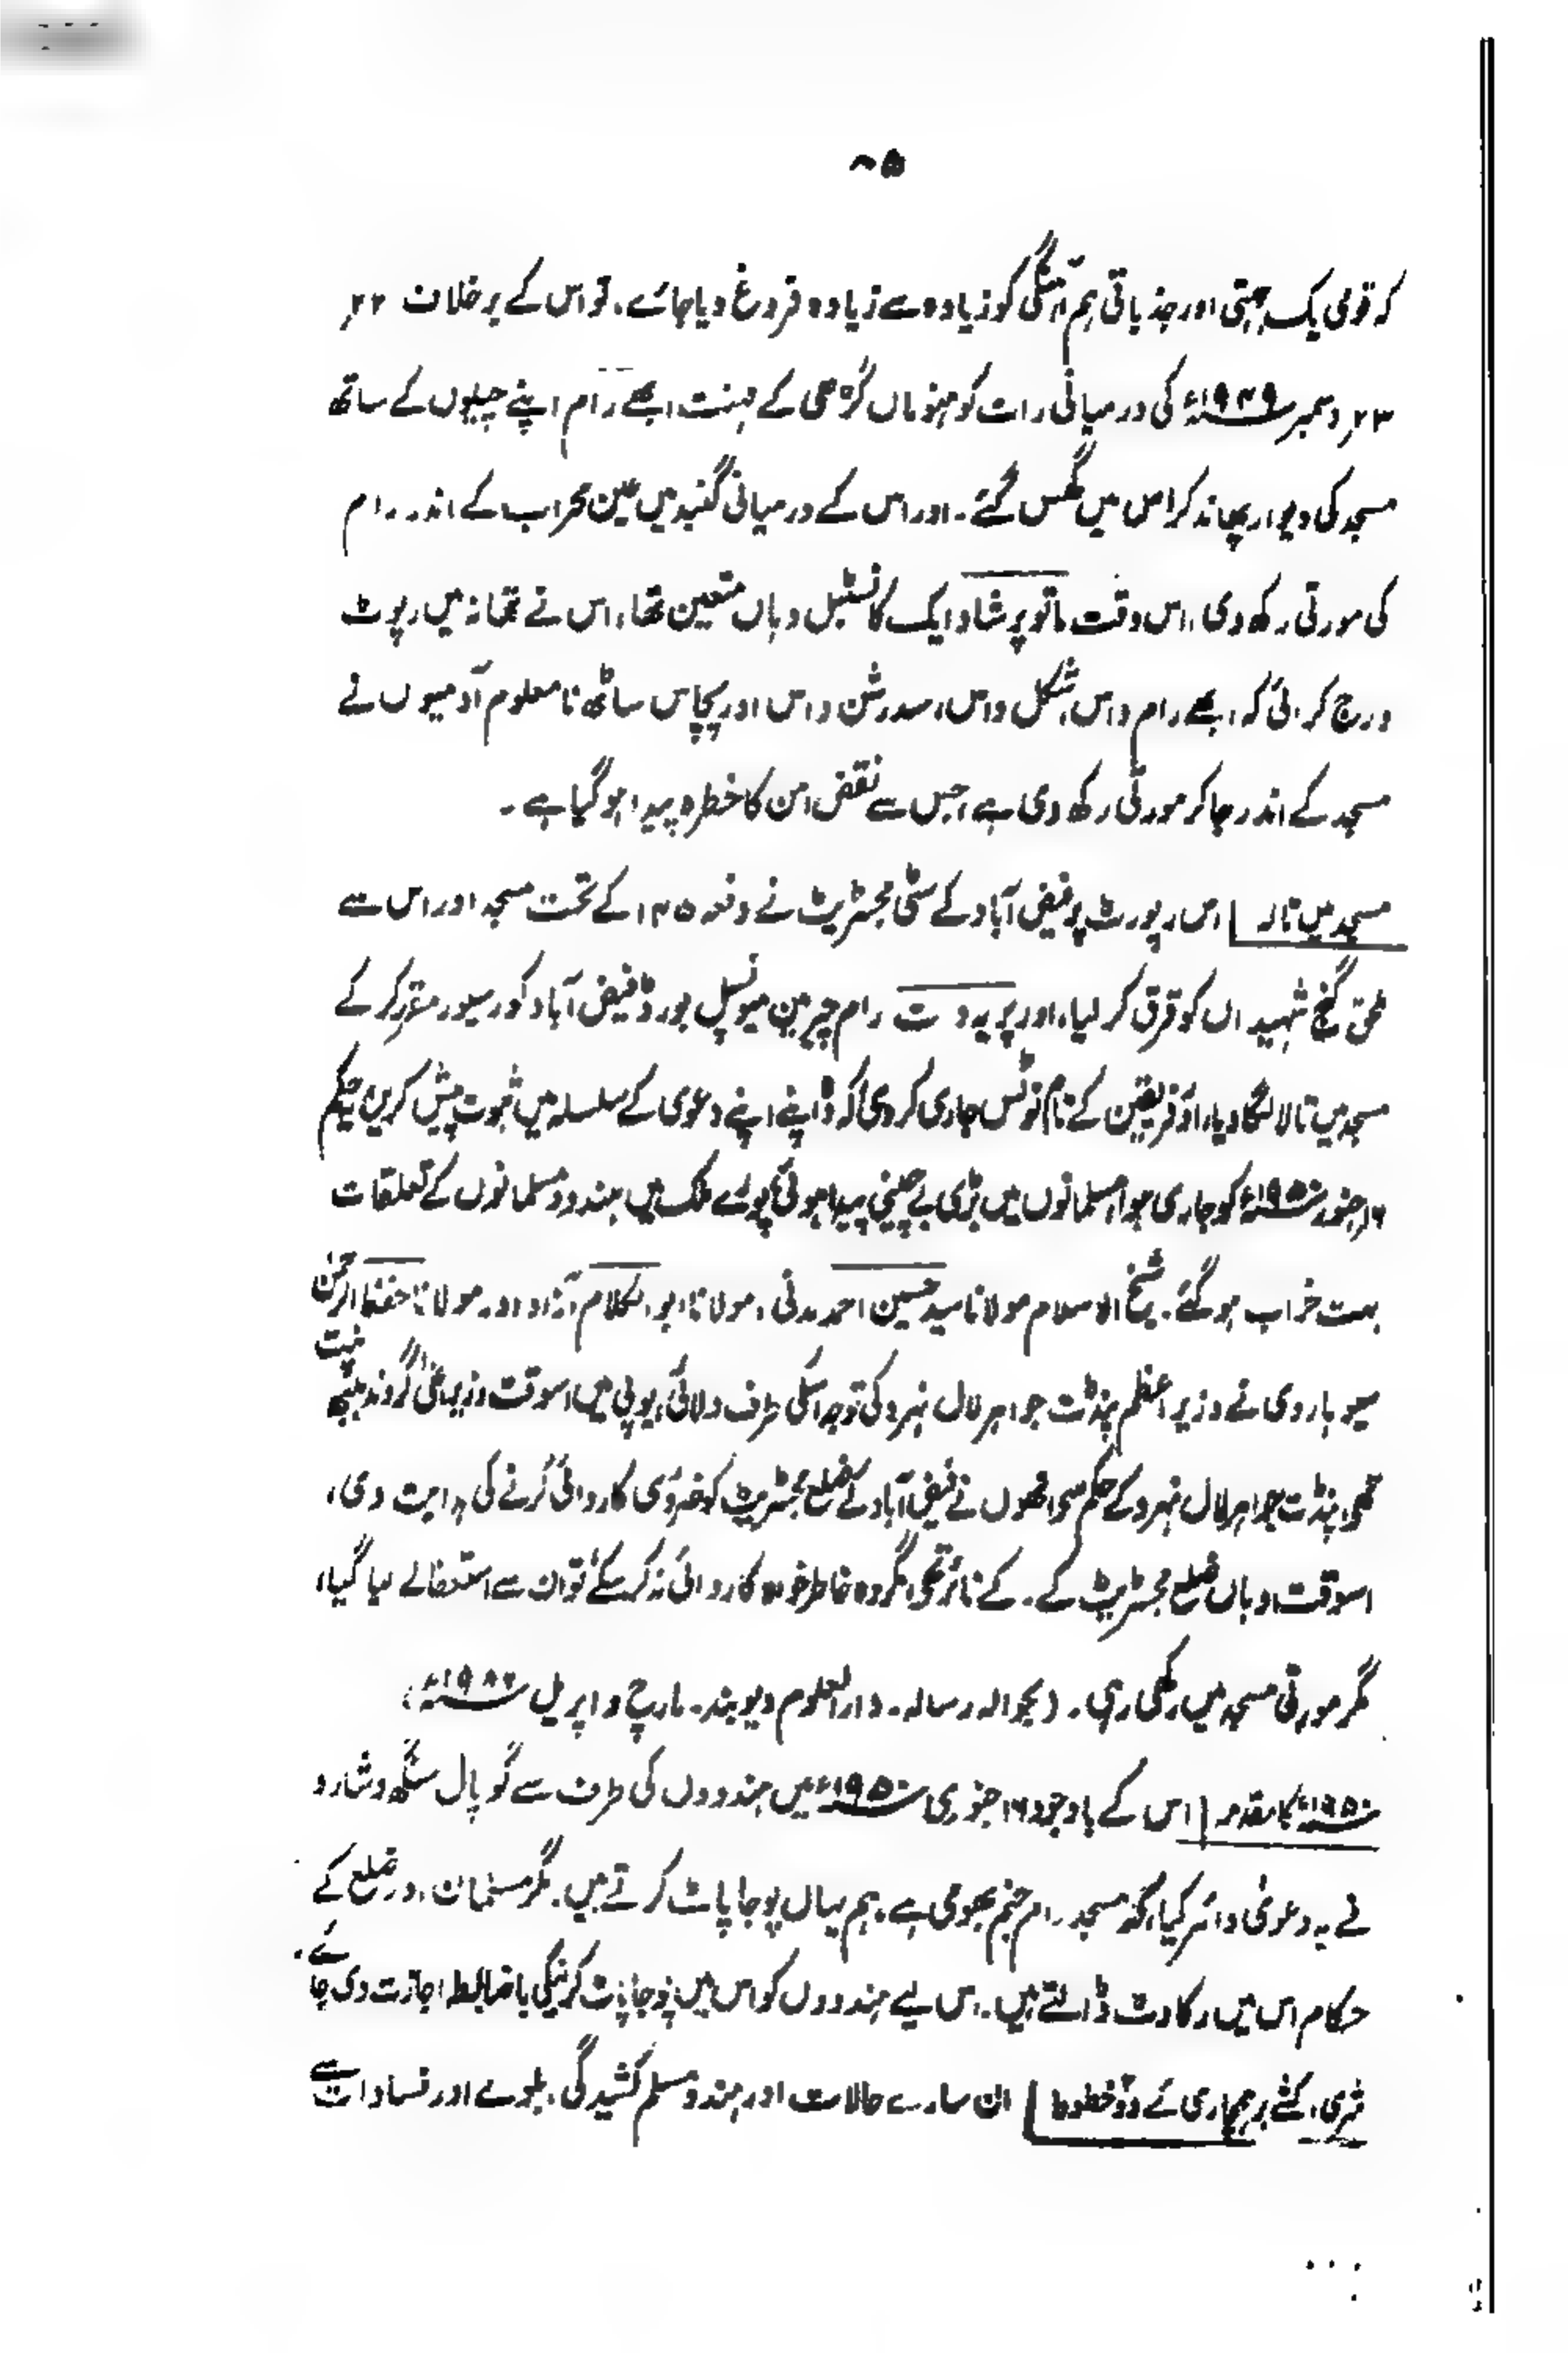 ۸۵
کہ قومی یک جہتی اور جذباتی ہم آہنگی کو زیادہ سے زیادہ فروغ دیا جائے، تو اس کے برخلاف ۲۲؍
۲۳؍ دسمبر ۱۹۴۹ء کی درمیانی رات کو ہنومان گڑھی کے مہنت ابھے رام اپنے چیلوں کے ساتھ
مسجد کی دیوار پھاند کر اس میں گھس گئے۔ اور اس کے درمیانی گنبد میں عین محراب کے اندر رام
کی مورتی رکھ دی، اس وقت ماتو پرشاد ایک کانسٹبل وہاں متعین تھا، اس نے تھانہ میں رپوٹ
درج کرائی کہ ابھے رام داس، شکل داس، سدرشن داس اور پچاس ساٹھ نامعلوم آدمیوں نے
مسجد کے اندر جا کر مورتی رکھ دی ہے، جس سے نقض امن کا خطرہ پیدا ہو گیا ہے۔
مسجد میں تالہ | اس رپورٹ پر فیض آباد کے سٹی مجسٹریٹ نے دفعہ ۱۴۵ کے تحت مسجد اور اس سے
ملحق گنج شہیداں کو قرق کر لیا، اور پریہ دت رام چیرمین میونسپل بورڈ فیض آباد کو رسیور مقرر کر کے
مسجد میں تالا لگا دیا، اور فریقین کے نام نوٹس جاری کر دی کہ اپنے اپنے دعوی کے سلسلہ میں ثبوت پیش کریں یہ حکم
۱۶؍ جنوری ۱۹۵۰ء کو جاری ہوا، مسلمانوں میں بڑی بے چینی پیدا ہوئی، پورے ملک میں ہندو و مسلمانوں کے تعلقات
بہت خراب ہو گئے۔ شیخ الاسلام مولانا سید حسین احمد مدنی، مولانا ابو الکلام آزاد اور مولانا حفظ الرحمن
سیوہاروی نے وزیر اعظم پنڈت جواہر لال نہرو کی توجہ اسکی طرف دلائی، یوپی میں اسوقت وزیر اعلیٰ گووند بلبھ پنت
تھے، پنڈت جواہر لال نہرو کے حکم سے انھوں نے فیض آباد کے ضلع مجسٹریٹ کو ضروری کاروائی کرنے کی ہدایت دی،
اسوقت وہاں ضلع مجسٹریٹ کے۔ کے نائر تھے، مگر وہ خاطر خواہ کاروائی نہ کر سکے، تو ان سے استعفا لے لیا گیا،
مگر مورتی مسجد میں رکھی رہی۔ (بحوالہ رسالہ۔ دارالعلوم دیوبند۔ مارچ و اپریل
۱۹۵۰ء کا مقدمہ | اس کے باوجود ۱۶ جنوری ۱۹۵۰ء میں ہندوؤں کی طرف سے گوپال سنگھ وشارد
نے یہ دعویٰ دائر کیا، کہ مسجد رام جنم بھومی ہے۔ ہم یہاں پوجا پاٹ کرتے ہیں۔ مگر مسلمان اور ضلع کے
حکام اس میں رکاوٹ ڈالتے ہیں۔ اس لیے ہندوؤں کو اس میں پوجا پاٹ کرنیکی باضابطہ اجازت دی جائے۔
شری اکشے برہمچاری کے دو خطوط | ان سارے حالات اور ہندو مسلم کشیدگی، بلوے اور فسادات سے